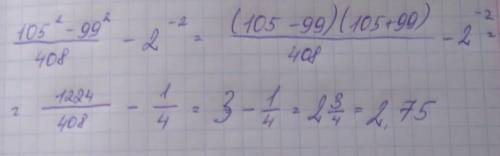 (105² - 99²)/408 - 2⁻² = ((105 - 99)(105 + 99))/408 - 2⁻² =
= 1224/408 - 1/4 = 3 - 1/4 = 2 3/4 = 2,75